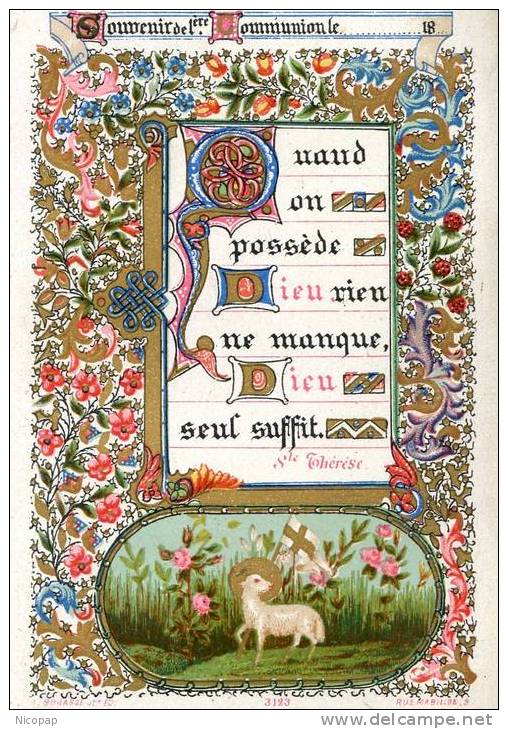 Souvenir de 1ère Communion le ........................ 18...
Quand
on
possède
Dieu rien
ne manque,
Dieu
seul suffit.
Ste Thérèse.
3123
RUE MABILLON, 3
Nicopap
delcampe.net